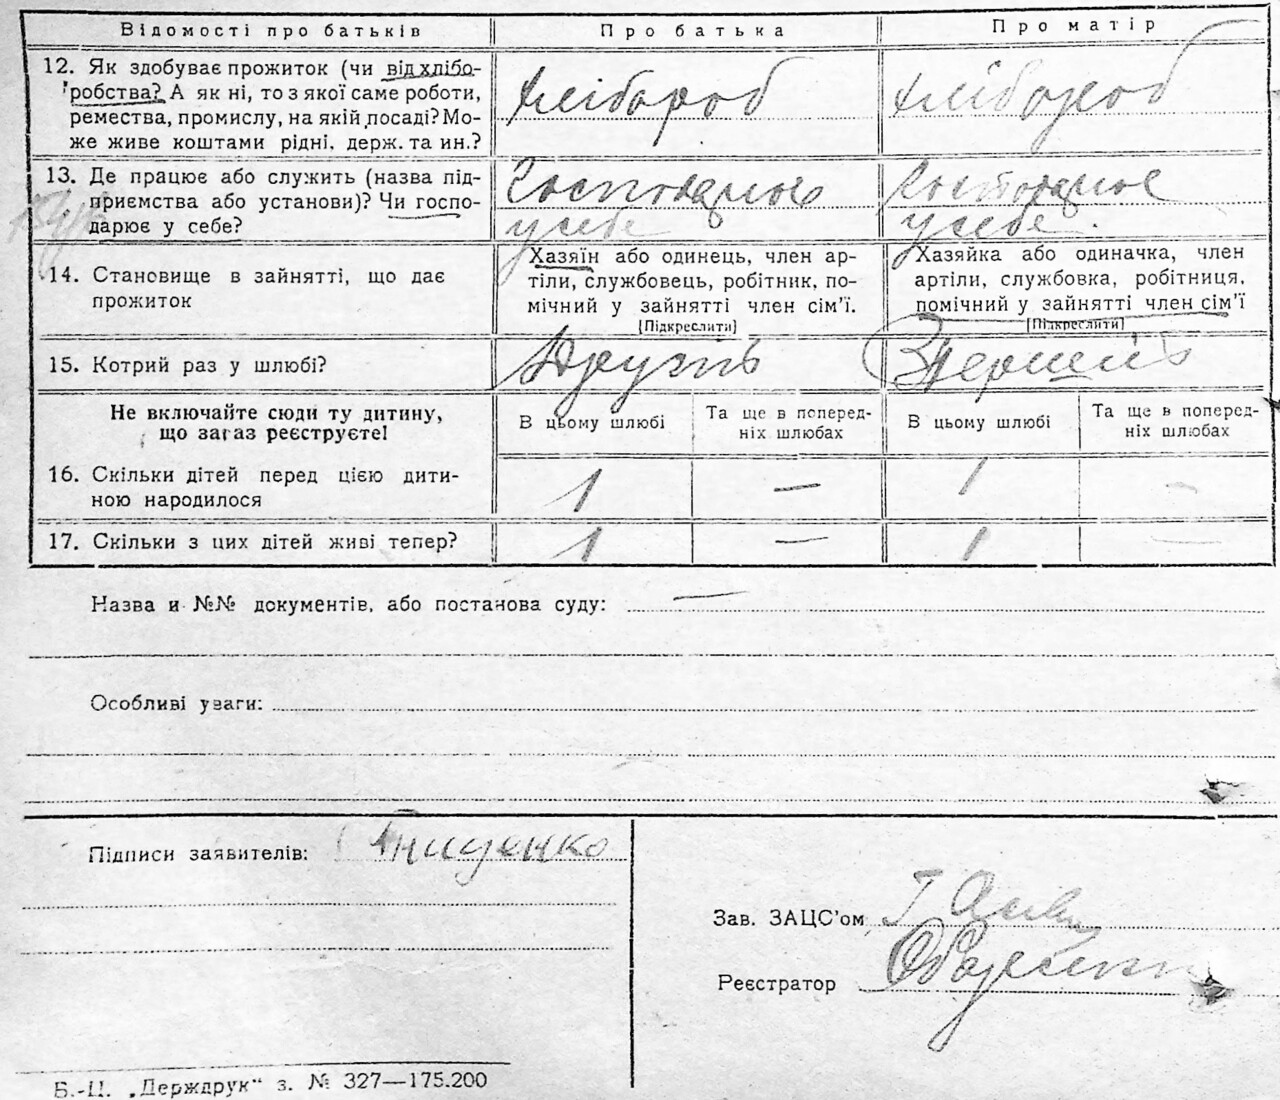 Відомості про батьків
Про батька
Про матір
12. Як здобуває прожиток (чи від хлібо-
робства? А як ні, то з якої саме роботи,
ремества, промислу, на якій посаді? Мо-
же живе коштами рідні, держ. та ин.?
Хлібороб
Хлібороб
13. Де працює або служить (назва під-
приємства або установи)? Чи госпо-
дарює у себе?
Господарює
у себе
Господарює
у себе
14. Становище в зайнятті, що дає
прожиток
Хазяїн або одинець, член ар-
тіли, службовець, робітник, по-
мічний у зайнятті член сім'ї.
[Підкреслити]
Хазяйка або одиначка, член
артіли, службовка, робітниця,
помічний у зайнятті член сім'ї
[Підкреслити]
15. Котрий раз у шлюбі?
Другий
Первий
Не включайте сюди ту дитину,
що загаз реєструєте!
В цьому шлюбі
Та ще в поперед-
ніх шлюбах
В цьому шлюбі
Та ще в поперед-
ніх шлюбах
16. Скільки дітей перед цією дити-
ною народилося
1
—
1
—
17. Скільки з цих дітей живі тепер?
1
—
1
—
Назва и №№ документів, або постанова суду: —
Особливі уваги:
Підписи заявителів:
Зав. ЗАЦС'ом
Реєстратор
Б.-Ц. „Держдрук" з. № 327—175.200